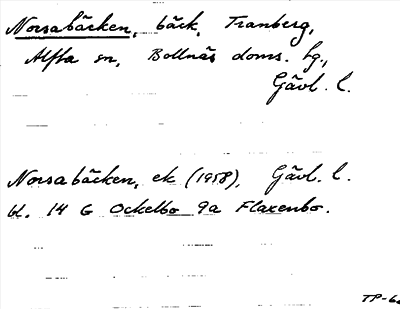 Norsabäcken, bäck, Tranberg,
Alfta sn, Bollnäs doms. hg.,
Gävl. l.
Norsabäcken, ek (1958), Gävl. l.
bl. 14 G Ockelbo 9a Flaxenbo.